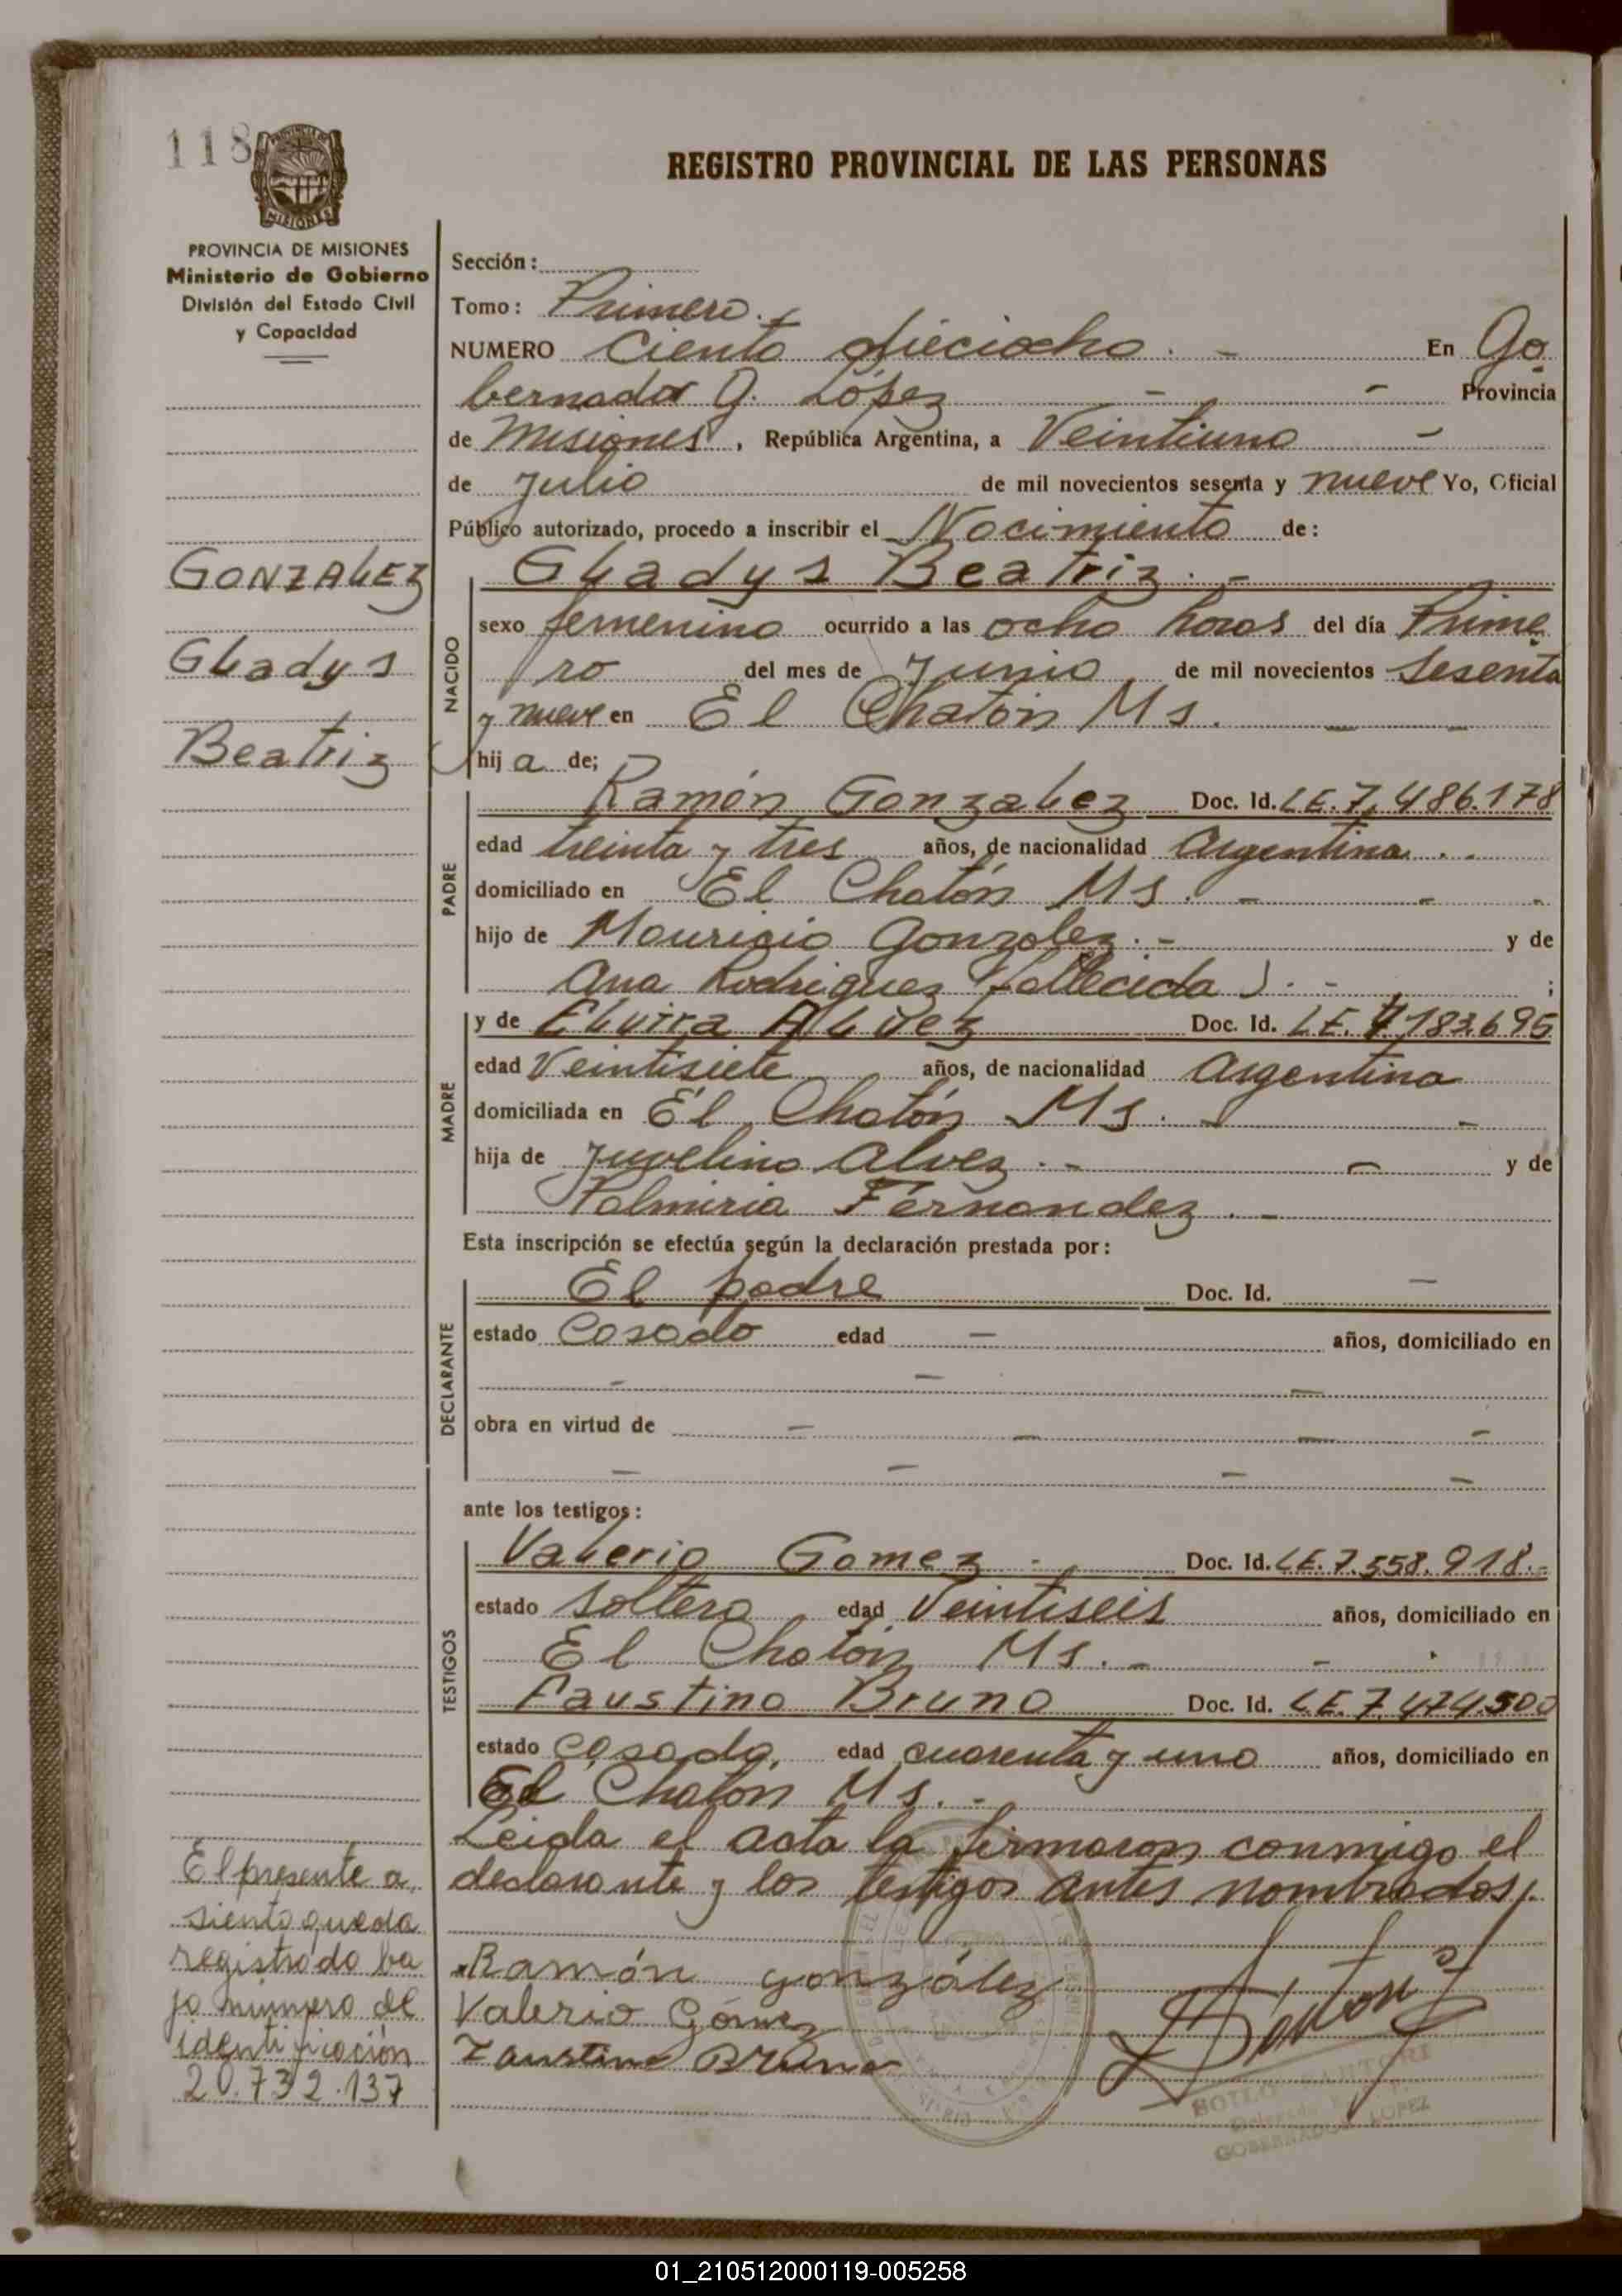 118
PROVINCIA DE MISIONES
Ministerio de Gobierno
División del Estado Civil
y Capacidad
REGISTRO PROVINCIAL DE LAS PERSONAS
Sección:
Tomo: Primero.-
NUMERO Ciento dieciocho.- En Go
bernador G. López - - Provincia
de Misiones, República Argentina, a Veintiuno -
de Julio de mil novecientos sesenta y nueve Yo, Oficial
Público autorizado, procedo a inscribir el Nacimiento de:
GONZALEZ
Gladys
Beatriz
NACIDO
Gladys Beatriz.-
sexo femenino ocurrido a las ocho horas del día Prime
ro del mes de Junio de mil novecientos sesenta
y nueve en El Chatón Ms. - -
hija de;
PADRE
Ramón Gonzalez Doc. Id. L.E. 7.486.178
edad treinta y tres años, de nacionalidad Argentina..
domiciliado en El Chatón Ms. - - -
hijo de Mauricio Gonzalez.- y de
Ana Rodriguez (fallecida).- ;
MADRE
y de Elvira Alvez Doc. Id. L.E. 4.183.695
edad Veintisiete años, de nacionalidad Argentina
domiciliada en El Chatón Ms. - -
hija de Juvelino Alvez.- - y de
Palmiria Fernandez.-
Esta inscripción se efectúa según la declaración prestada por:
DECLARANTE
El padre Doc. Id. -
estado Casado edad - años, domiciliado en
- - -
obra en virtud de - - - -
- - - -
ante los testigos:
TESTIGOS
Valerio Gomez - Doc. Id. L.E. 7.558.918.-
estado soltero edad Veintiseis años, domiciliado en
El Chatón Ms.- -
Faustino Bruno Doc. Id. L.E. 7.474.500
estado casado, edad cuarenta y uno años, domiciliado en
El Chatón Ms.-
Leida el acta la firmaron conmigo el
declarante y los testigos antes nombrados.
El presente a
siento queda
registrado ba
jo número de
identificación
20.732.137
Ramón González
Valerio Gómez
Faustino Bruno
GOBERNADOR LOPEZ
01_210512000119-005258